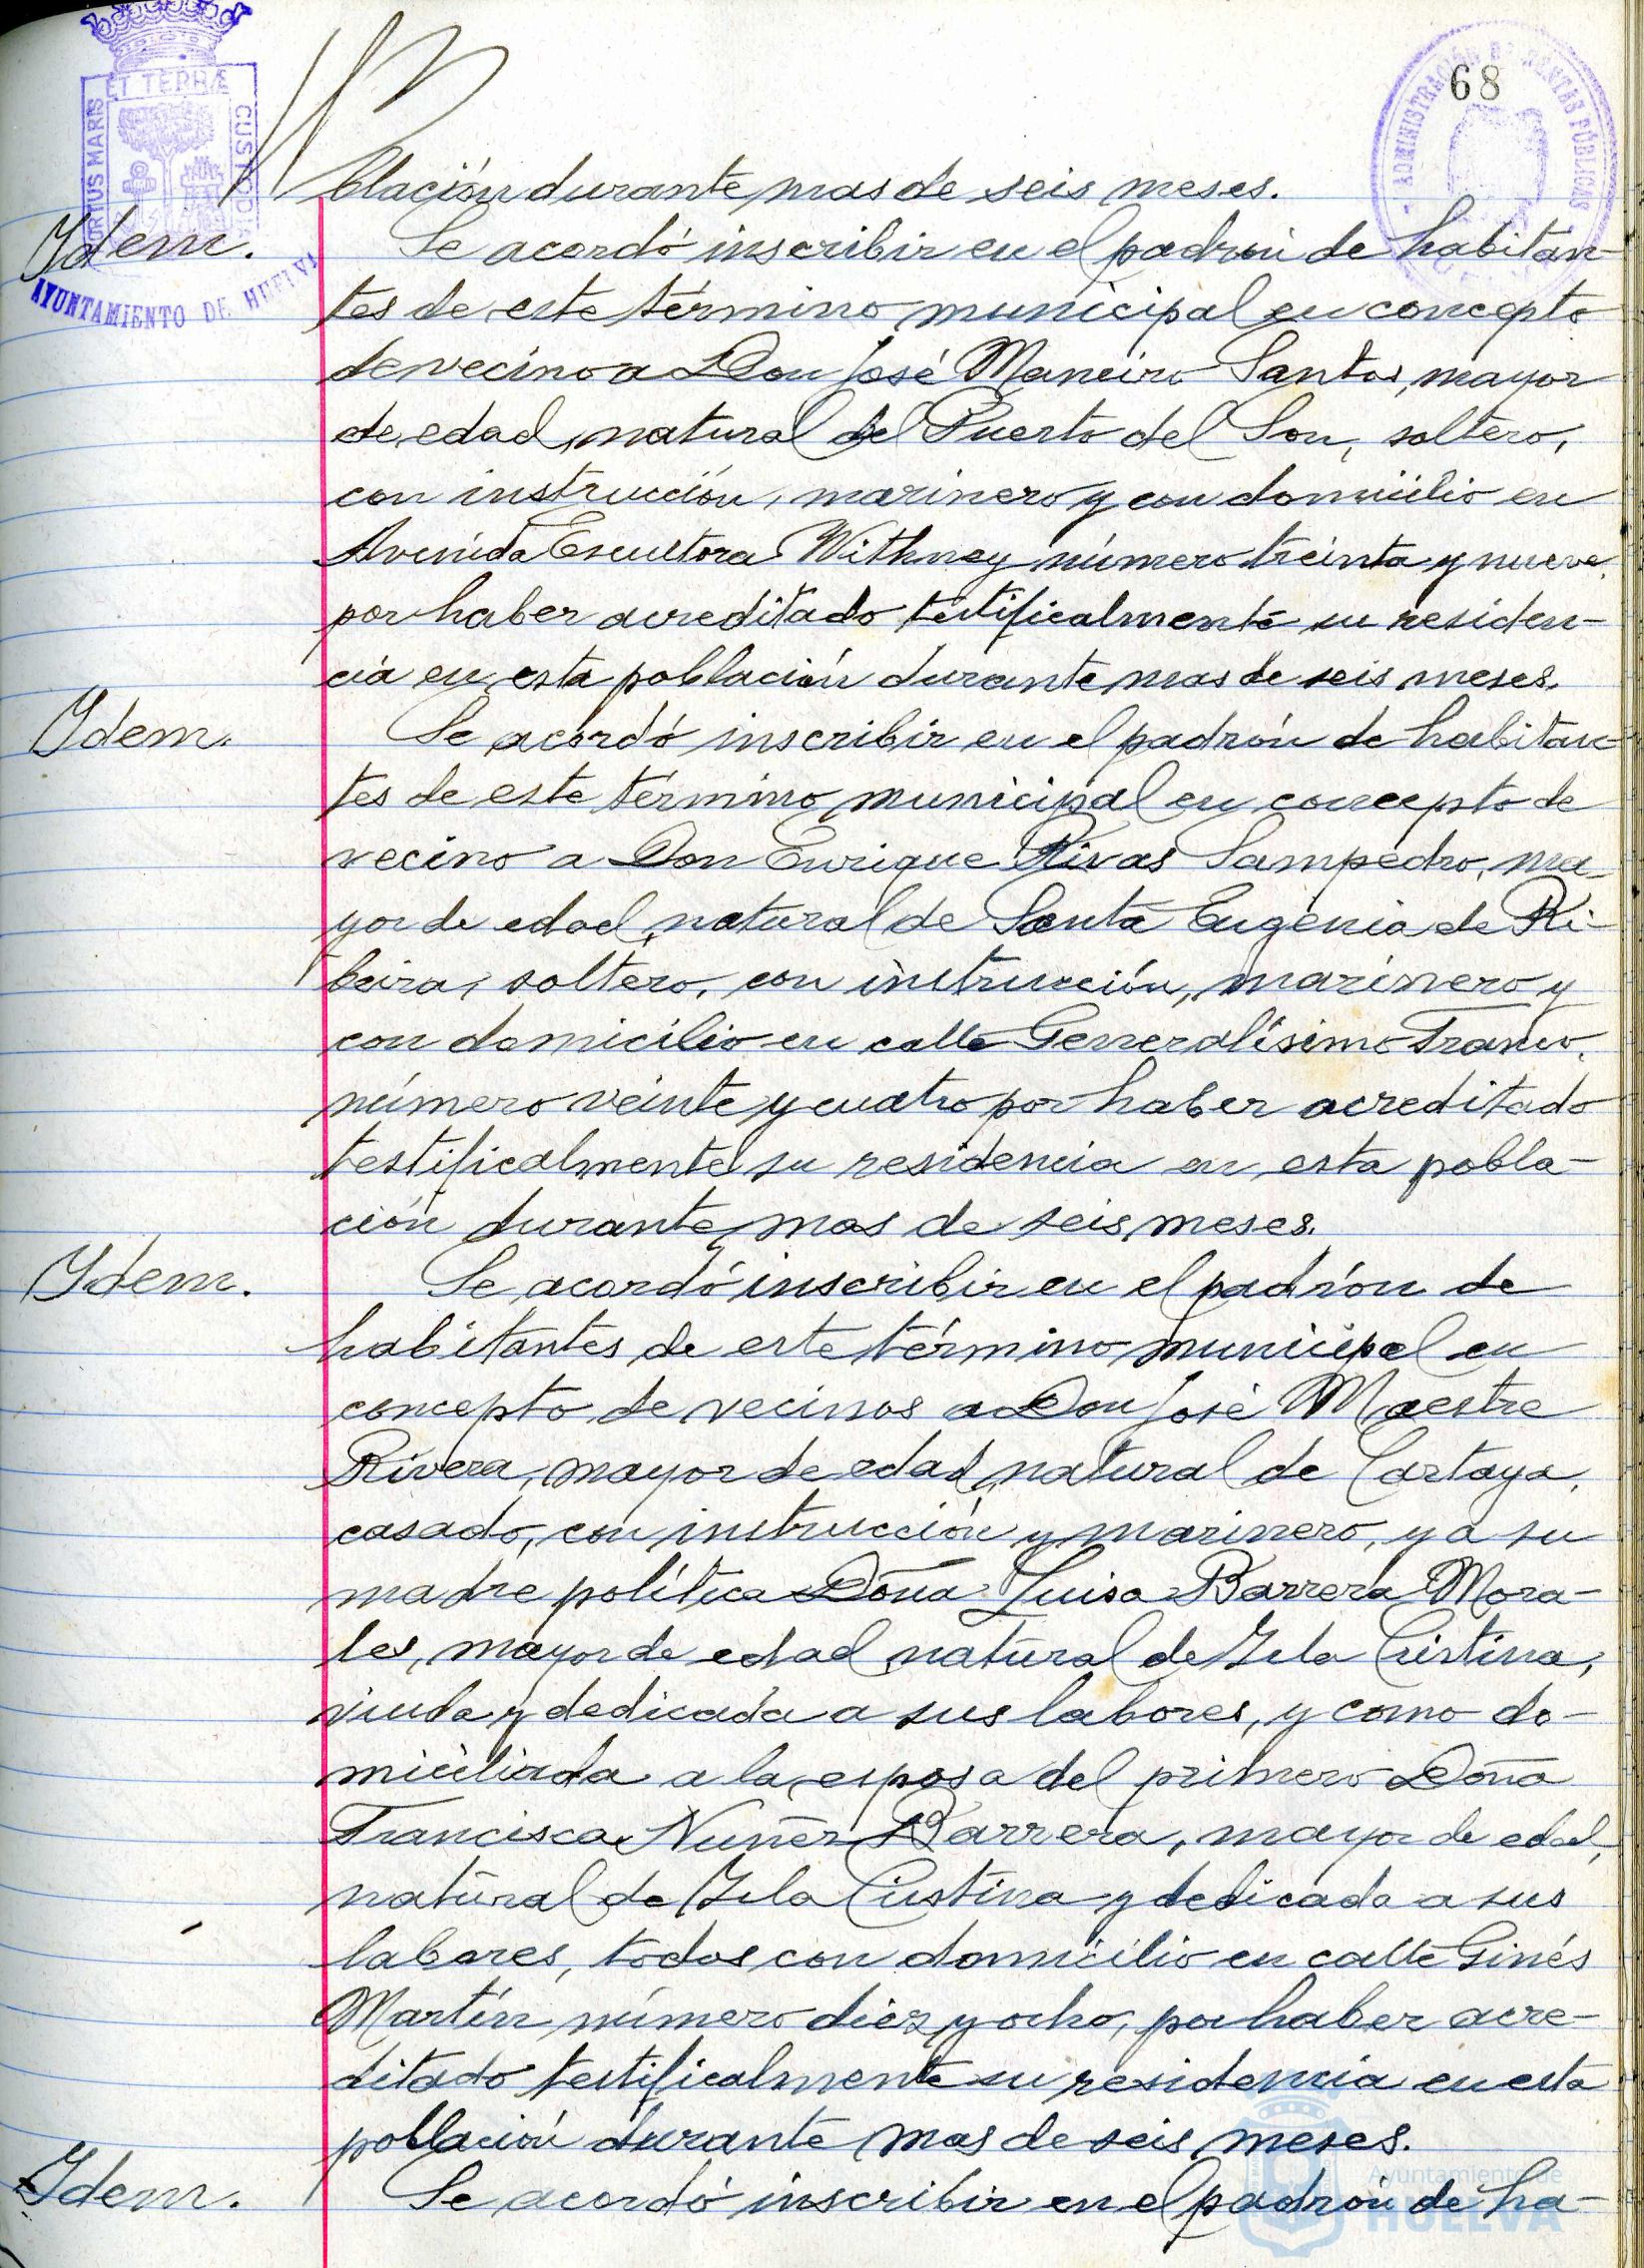 68
ET TERRÆ
PORTUS MARIS
CUSTODIA
AYUNTAMIENTO DE HUELVA
ADMINISTRACIÓN DE RENTAS PÚBLICAS
blación durante mas de seis meses.
Ydem. Se acordó inscribir en el padrón de habitan-
tes de este término municipal en concepto
de vecino a Don José Maneiro Santos, mayor
de edad, natural del Puerto del Son, soltero,
con instrucción, marinero y con domicilio en
Avenida Escultora Withney número treinta y nueve,
por haber acreditado testificalmente su residen-
cia en esta población durante mas de seis meses.
Ydem. Se acordó inscribir en el padrón de habitan-
tes de este término municipal en concepto de
vecino a Don Enrique Rivas Sampedro, ma-
yor de edad, natural de Santa Eugenia de Ri-
beira, soltero, con instrucción, marinero y
con domicilio en calle Generalísimo Franco,
número veinte y cuatro por haber acreditado
testificalmente su residencia en esta pobla-
ción durante mas de seis meses.
Ydem. Se acordó inscribir en el padrón de
habitantes de este término municipal en
concepto de vecinos a Don José Maestre
Rivera, mayor de edad, natural de Cartaya,
casado, con instrucción y marinero, y a su
madre política Doña Luisa Barrera Mora-
les, mayor de edad, natural de Ysla Cristina,
viuda y dedicada a sus labores, y como do-
miciliada a la esposa del primero Doña
Francisca Nuñez Barrera, mayor de edad,
natural de Ysla Cristina y dedicada a sus
labores, todos con domicilio en calle Ginés
Martín número diez y ocho, por haber acre-
ditado testificalmente su residencia en esta
población durante mas de seis meses.
Ydem. Se acordó inscribir en el padrón de ha-
Ayuntamiento de
HUELVA